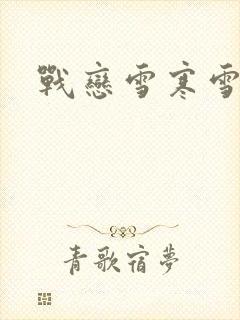 戰戀雪寒雪
青歌宿夢